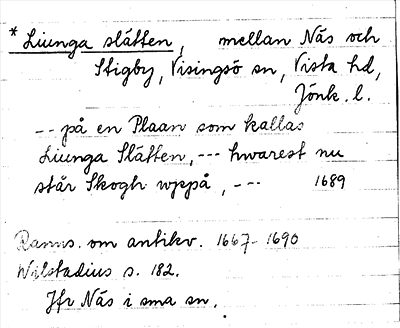 * Liunga slätten, mellan Näs och
Stigby, Visingsö sn, Vista hd,
Jönk. l.
-- på en Plaan som kallas
Liunga Slätten, --- hwarest nu
står Skogh uppå, --- 1689
Ranns. om antikv. 1667-1690
Wilstadius s. 182.
Jfr Näs i sma sn.